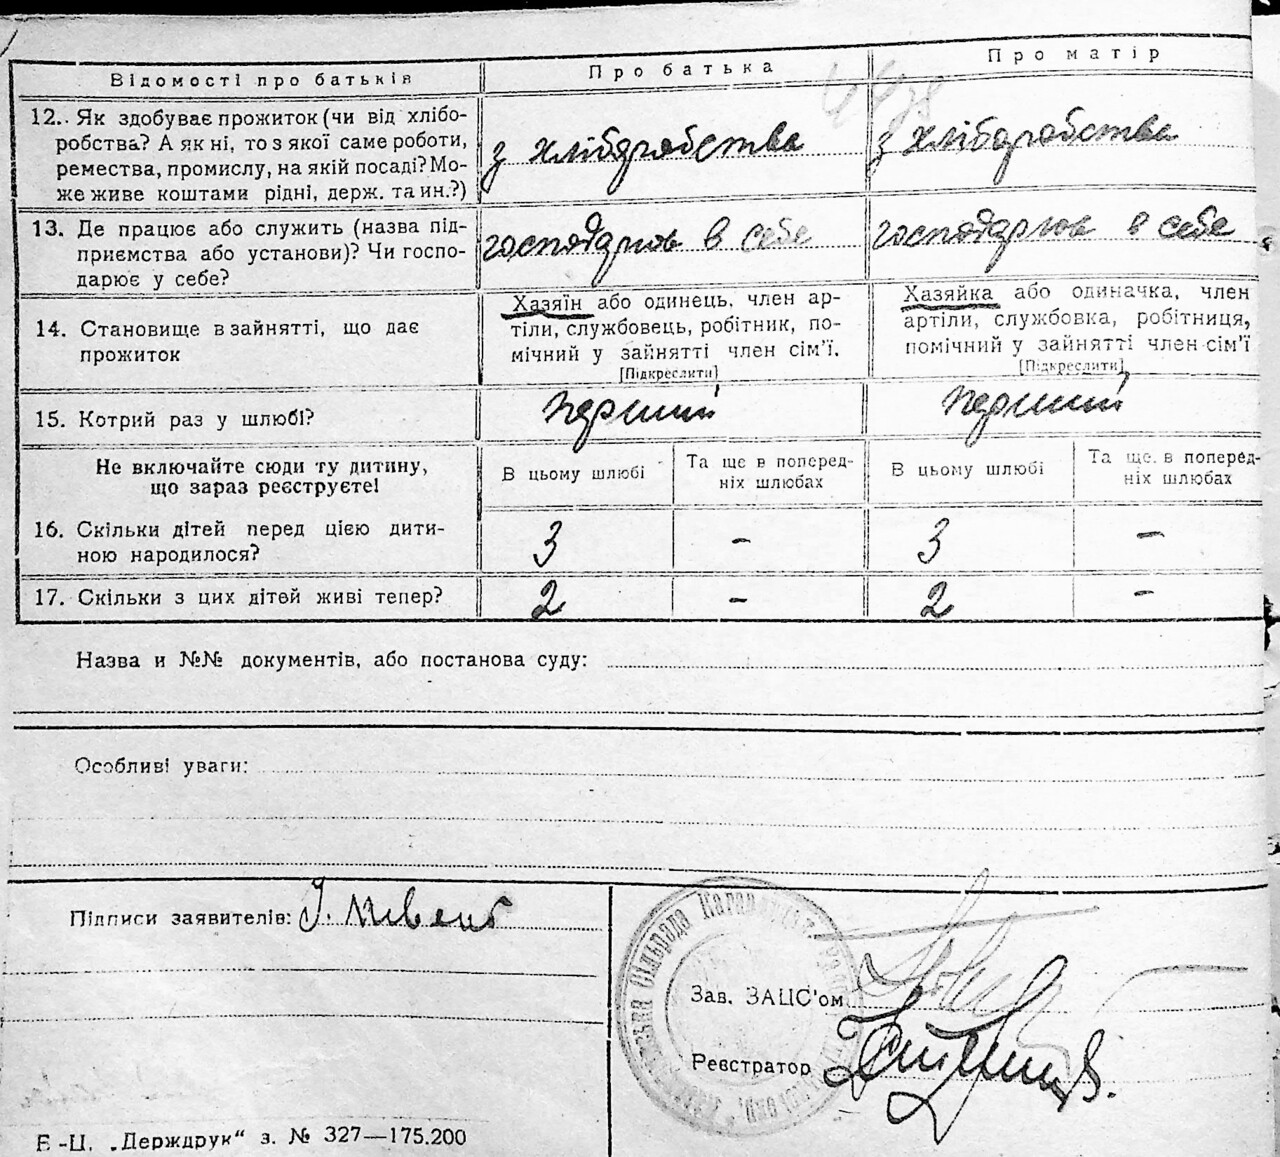 Відомості про батьків
Про батька
Про матір
12. Як здобуває прожиток (чи від хлібо-
робства? А як ні, то з якої саме роботи,
ремества, промислу, на якій посаді? Мо-
же живе коштами рідні, держ. та ин.?)
з хліборобства
з хліборобства
13. Де працює або служить (назва під-
приємства або установи)? Чи госпо-
дарює у себе?
господарює в себе
господарює в себе
14. Становище в зайнятті, що дає
прожиток
Хазяїн або одинець, член ар-
тіли, службовець, робітник, по-
мічний у зайнятті член сім'ї.
[Підкреслити]
Хазяйка або одиначка, член
артіли, службовка, робітниця,
помічний у зайнятті член сім'ї
[Підкреслити]
15. Котрий раз у шлюбі?
перший
перший
Не включайте сюди ту дитину,
що зараз реєструєте!
В цьому шлюбі
Та ще в поперед-
ніх шлюбах
В цьому шлюбі
Та ще в поперед-
ніх шлюбах
16. Скільки дітей перед цією дити-
ною народилося?
3
-
3
-
17. Скільки з цих дітей живі тепер?
2
-
2
-
Назва и №№ документів, або постанова суду:
Особливі уваги:
Підписи заявителів: І. Півень
Зав. ЗАЦС'ом
Реєстратор
Сільрада
„Держдрук" з. № 327—175.200